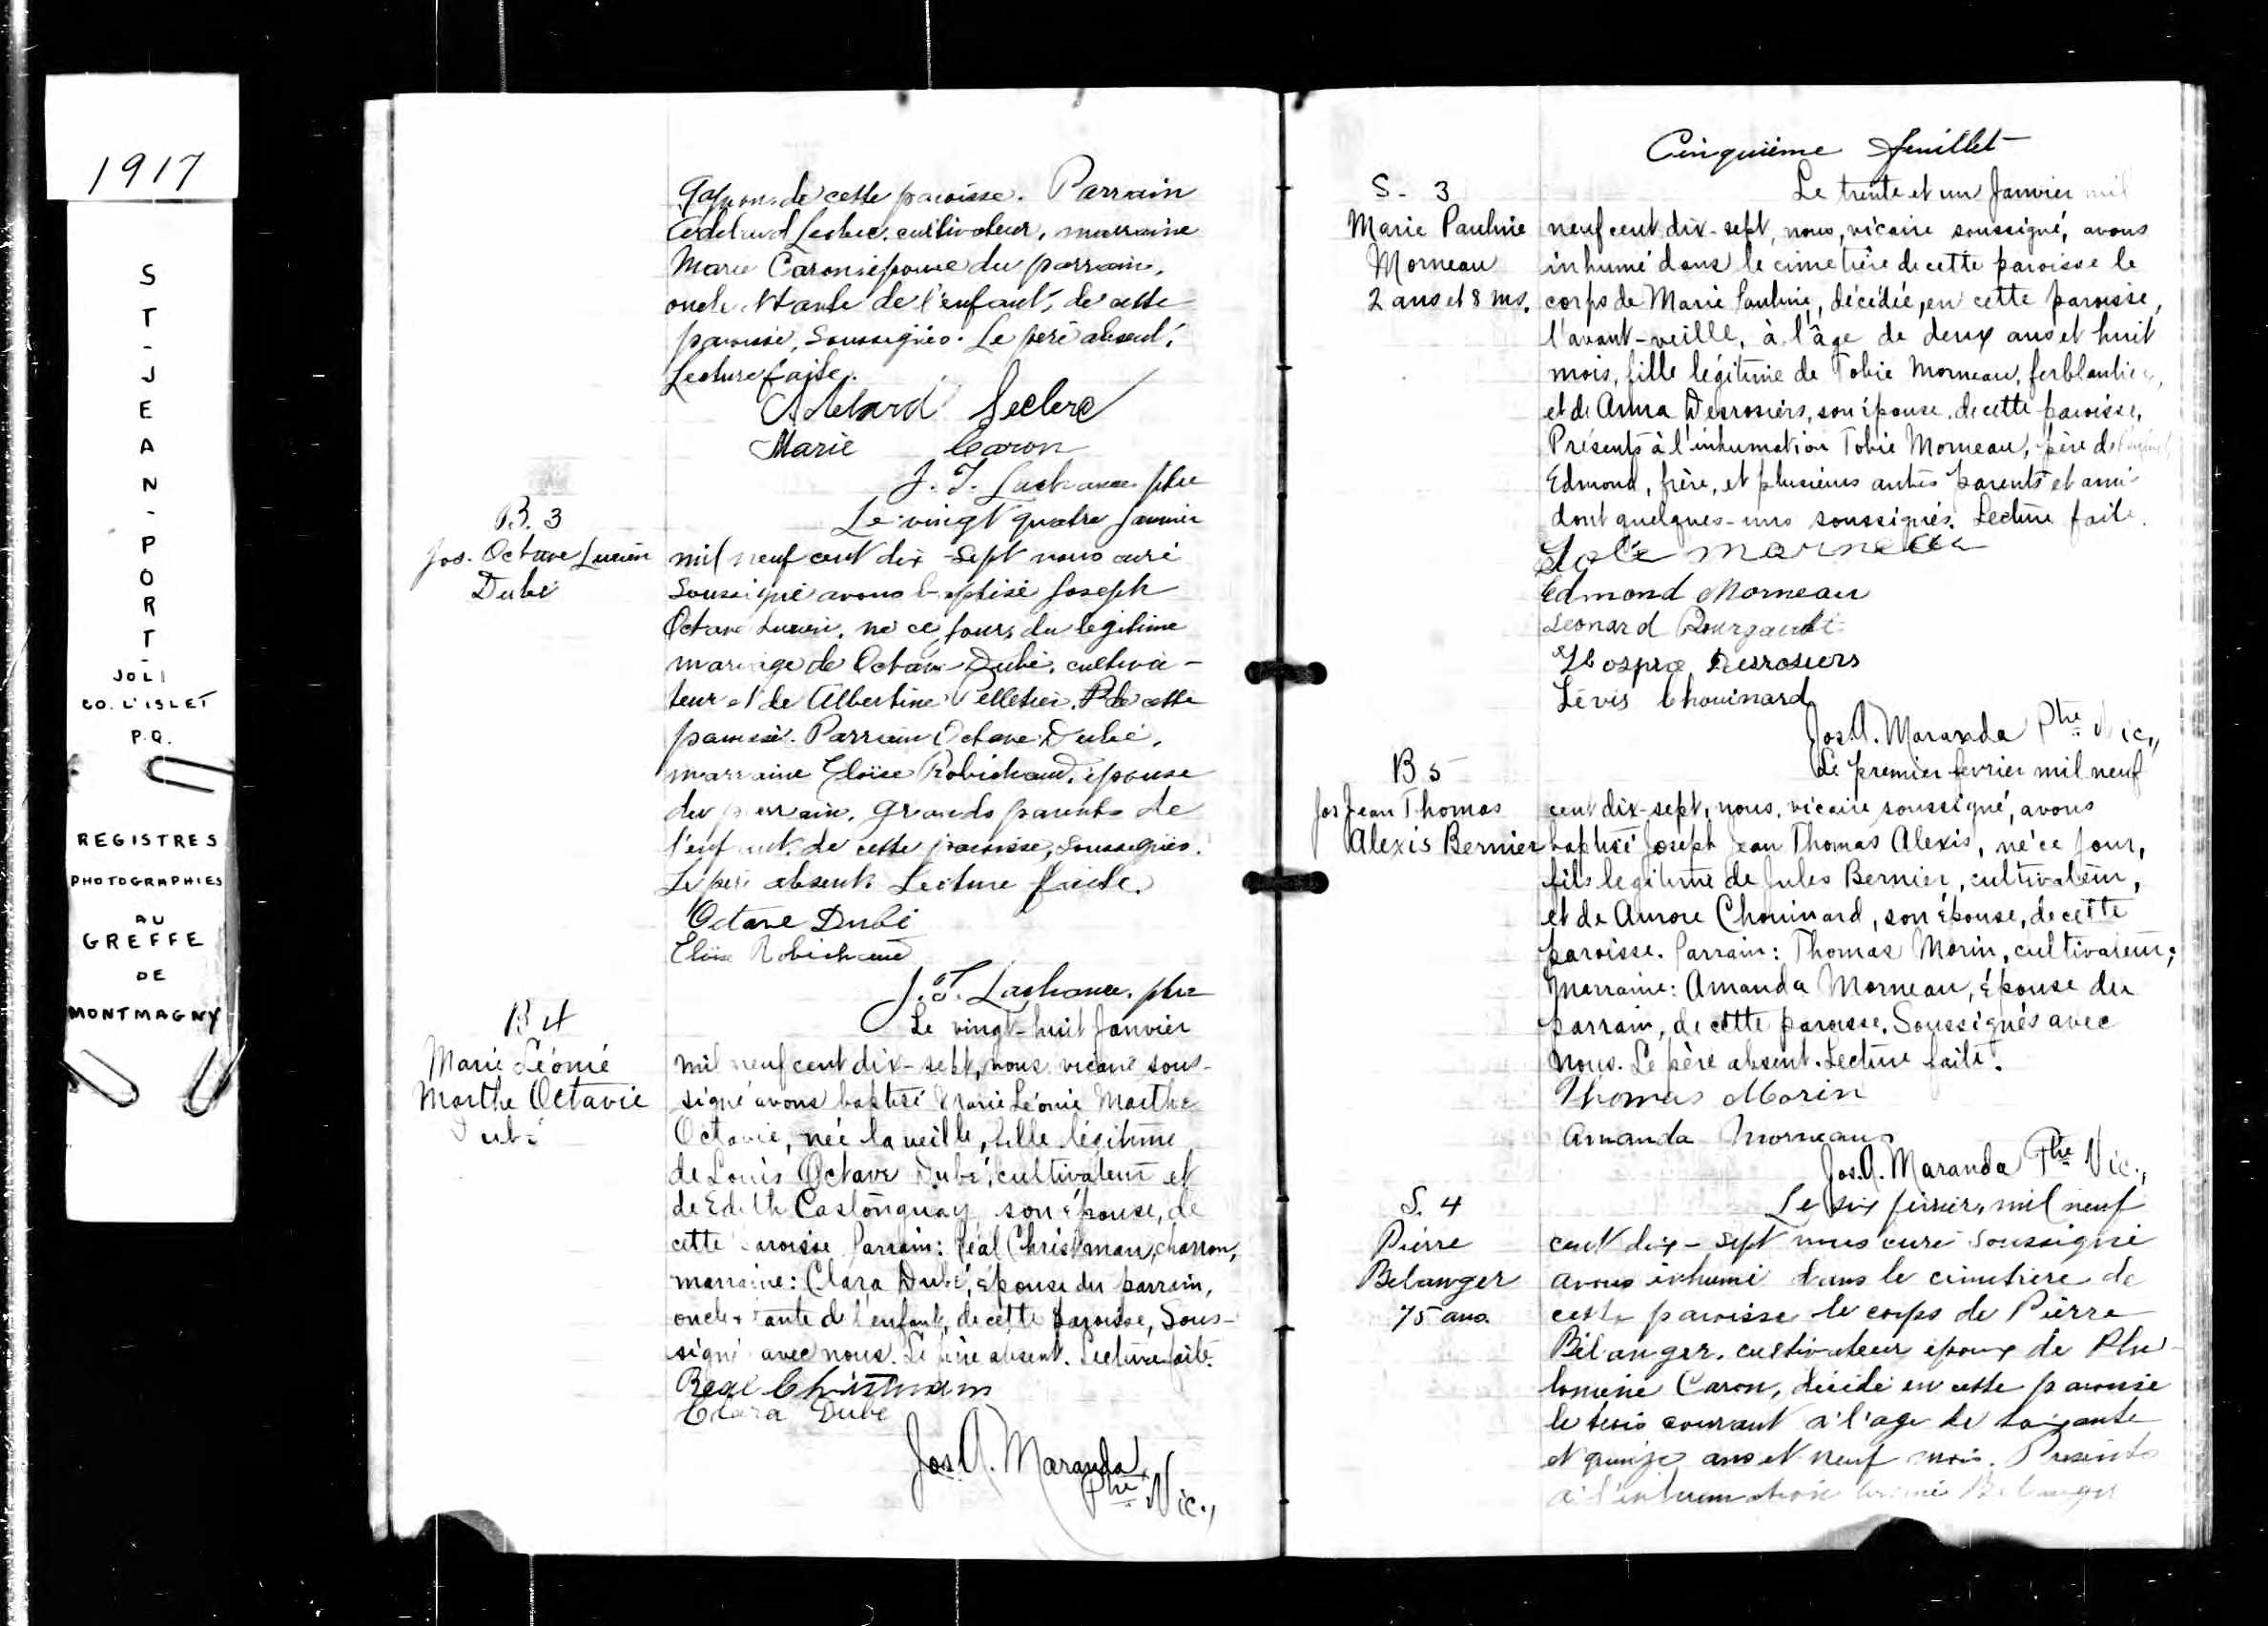 1917
ST-JEAN-PORT-
JOLI
CO. L'ISLET
P.Q.
REGISTRES
PHOTOGRAPHIES
AU
GREFFE
DE
MONTMAGNY
de cette paroisse. Parrain
Leclerc, cultivateur, marraine
Marie Caron épouse du parrain,
oncle et tante de l'enfant, de cette
paroisse, soussignés. Le père absent.
Lecture faite.
Adelard Leclerc
Marie Caron
J. T. Lachance ptre
B. 3
Jos. Octave Lucien
Dubé
Le vingt quatre Janvier
mil neuf cent dix-sept nous curé
soussigné avons baptisé Joseph
Octave Lucien, né ce jour, du légitime
mariage de Octave Dubé, cultiva-
teur et de Albertine Pelletier, de cette
paroisse. Parrain Octave Dubé,
marraine Eloïse Robichaud, épouse
du parrain, grands parents de
l'enfant, de cette paroisse, soussignés.
Le père absent. Lecture faite.
Octave Dubé
Eloïse Robichaud
J. T. Lachance, ptre
B 4
Marie Léonie
Marthe Octavie
Dubé
Le vingt-huit Janvier
mil neuf cent dix-sept, nous vicaire sous-
signé avons baptisé Marie Léonie Marthe
Octavie, née la veille, fille légitime
de Louis Octave Dubé, cultivateur et
de Edith Castonguay son épouse, de
cette paroisse. Parrain: Réal Christman, charron,
marraine: Clara Dubé, épouse du parrain,
oncle & tante de l'enfant, de cette paroisse, Sous-
signé avec nous. Le père absent. Lecture faite.
Real Christmam
Clara Dube
Jos. A. Maranda
Ptre Vic.,
Cinquième feuillet
S- 3
Marie Pauline
Morneau
2 ans et 8 ms.
Le trente et un Janvier mil
neuf cent dix-sept, nous, vicaire soussigné, avons
inhumé dans le cimetière de cette paroisse le
corps de Marie Pauline, décédée, en cette paroisse,
l'avant-veille, à l'âge de deux ans et huit
mois, fille légitime de Tobie Morneau, ferblantier,
et de Anna Desrosiers, son épouse, de cette paroisse,
Présents à l'inhumation Tobie Morneau, père de l'enfant
Edmond, frère, et plusieurs autres parents et amis
dont quelques-uns soussignés. Lecture faite.
morneau
Edmond Morneau
Leonard Bourgault
Desrosiers
Lévis Chouinard
Jos. A. Maranda Ptre Vic.,
B 5
Jos Jean Thomas
Alexis Bernier
Le premier fevrier mil neuf
cent dix-sept, nous, vicaire soussigné, avons
baptisé Joseph Jean Thomas Alexis, né ce jour,
fils legitime de Jules Bernier, cultivateur,
et de Aurore Chouinard, son épouse, de cette
paroisse. Parrain: Thomas Morin, cultivateur;
Marraine: Amanda Morneau, épouse du
parrain, de cette paroisse. Soussignés avec
nous. Le père absent. Lecture faite.
Thomas Morin
Amanda Morneau
Jos. A. Maranda Ptre Vic.,
S. 4
Pierre
Belanger
75 ans.
Le six fevrier, mil neuf
cent dix-sept nous curé soussigné
avons inhumé dans le cimetière de
cette paroisse le corps de Pierre
Bélanger, cultivateur époux de Phi-
lomène Caron, décédé en cette paroisse
le trois courant à l'age de soixante
et quinze ans et neuf mois. Présents
à l'inhumation Bélanger